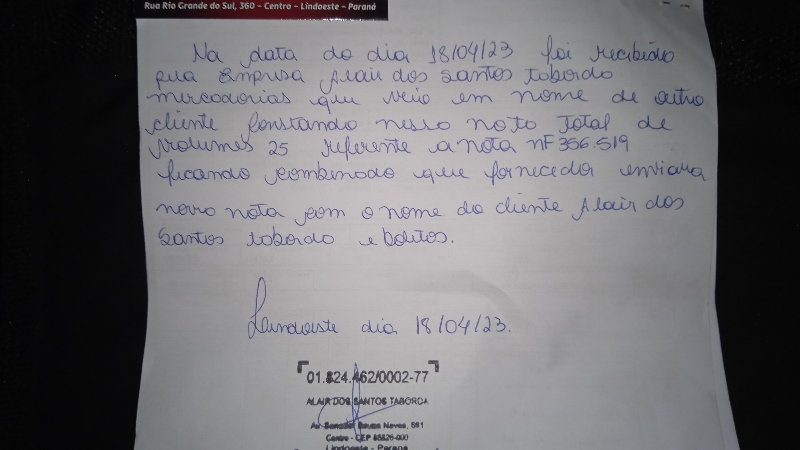 Rua Rio Grande do Sul, 360 - Centro - Lindoeste - Paraná
Na data do dia 18/04/23 foi recibido
pela Empresa Alair dos santos tabordo
mercadorias que veio em nome de outro
cliente constando nesso noto total de
volumes 25 referente a nota nF 356.519
ficando combinado que fornecedor enviara
novo nota com o nome do cliente Alair dos
Santos tobordo e bolitos.
Lindoeste dia 18/04/23.
01.824.462/0002-77
ALAIR DOS SANTOS TABORDA
Av. Senador Souza Naves, 581
Centro - CEP 85826-000
Lindoeste - Paraná